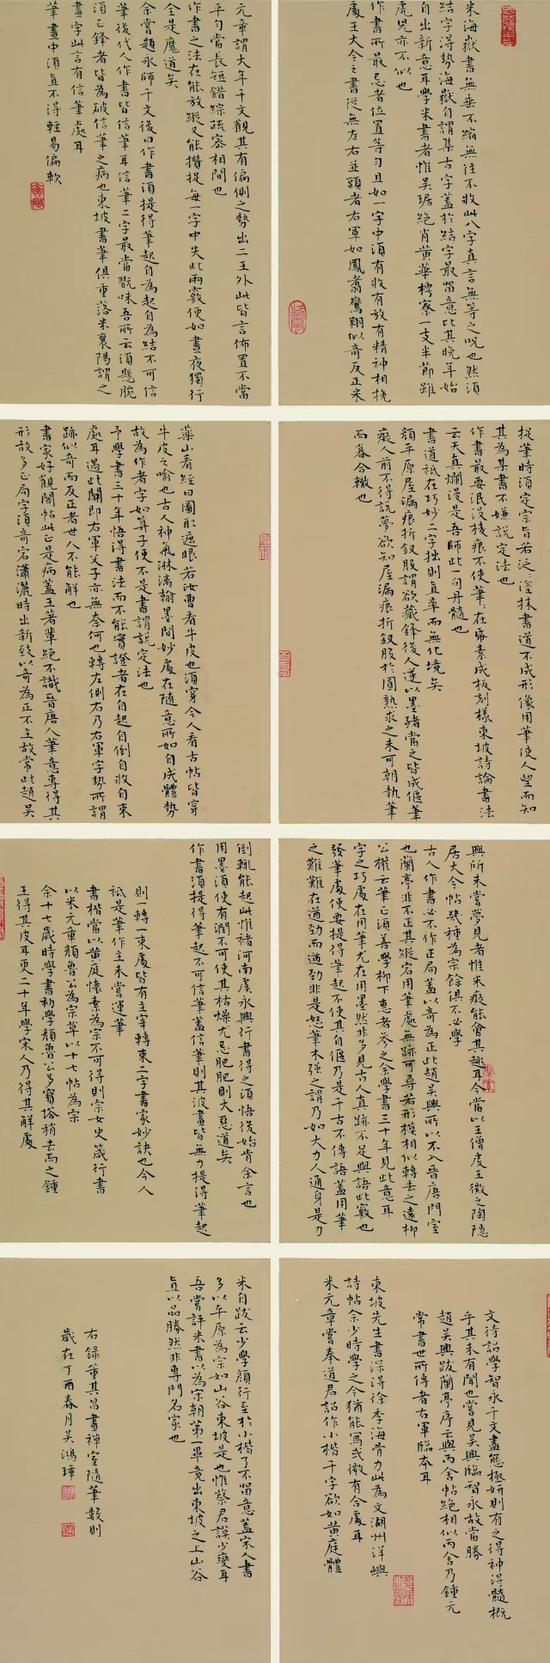 米海嶽書無垂不縮無往不收此八字真言無等之呪也然須
結字得勢海嶽自謂集古字蓋於結字最留意比其晚年始
自出新意耳學米書者惟吳琚絕肖黃華樗寮一支半節雖
虎兒亦不似也
作書所最忌者位置等勻且如一字中須有收有放有精神相挽
處王大令之書從無左右並頭者右軍如鳳翥鸞翔似奇反正米
元章謂大年千文觀其有偏側之勢出二王外此皆言佈置不當
平勻當長短錯綜疏密相間也
作書之法在能放縱又能攢捉每一字中失此兩竅便如晝夜獨行
全是魔道矣
余嘗題永師千文後曰作書須提得筆起自為起自為結不可信
筆後代人作書皆信筆耳信筆二字最當玩味吾所云須懸腕
須正鋒者皆為破信筆之病也東坡書筆俱重落米襄陽謂之
畫字此言有信筆處耳
筆畫中須直不得輕易偏軟
捉筆時須定宗旨若泛泛塗抹書道不成形像用筆使人望而知
其為某書不嫌說定法也
作書最要泯沒棱痕不使筆筆在紙素成板刻樣東坡詩論書法
云天真爛漫是吾師此一句丹髓也
書道祗在巧妙二字拙則直率而無化境矣
顏平原屋漏痕折釵股謂欲藏鋒後人遂以墨豬當之皆成偃筆
癡人前不得說夢欲知屋漏痕折釵股於圓熟求之未可朝執筆
而暮合轍也
藥山看經曰圖取遮眼若汝曹看牛皮也須穿今人看古帖皆穿
牛皮之喻也古人神氣淋漓翰墨間妙處在隨意所如自成體勢
故為作者字如算子便不是書謂說定法也
予學書三十年悟得書法而不能實證者在自起自倒自收自束
處耳過此關即右軍父子亦無奈何也轉左側右乃右軍字勢所謂
跡似奇而反正者世人不能解也
書家好觀閣帖此正是病蓋王著輩絕不識晉唐人筆意專得其
形故多正局字須奇宕瀟灑時出新致以奇為正不主故常此趙吳
興所未嘗夢見者惟米癡能會其趣耳今當以王僧虔王徽之陶隱
居大令帖幾種為宗餘俱不必學
古人作書必不作正局蓋以奇為正此趙吳興所以不入晉唐門室
也蘭亭非不正其縱宕用筆處無跡可尋若形模相似轉去之遠柳
公權云筆正須善學柳下惠者參之余學書三十年見此意耳
字之巧處在用筆尤在用墨然非多見古人真跡不足與語此竅也
發筆處便要提得筆起不使其自偃乃是千古不傳語蓋用筆
之難難在遒勁而遒勁非是怒筆木強之謂乃如大力人通身是力
倒輒能起此惟褚河南虞永興行書得之須悟後始肯余言也
用墨須使有潤不可使其枯燥尤忌肥肥則大惡道矣
作書須提得筆起不可信筆蓋信筆則其波畫皆無力提得筆起
則一轉一束處皆有主宰轉束二字書家妙訣也今人
祗是筆作主未嘗運筆
書楷當以黃庭懷素為宗不可得則宗女史箴行書
以米元章顏魯公為宗草以十七帖為宗
余十七歲時學書初學顏魯公多寶塔稍去而之鍾
王得其皮耳更二十年學宋人乃得其解處
文待詔學智永千文盡態極妍則有之得神得髓概
乎其未有聞也嘗見吳興臨智永故當勝
趙吳興跋蘭亭序云與丙舍帖絕相似丙舍乃鍾元
常書世所傳者右軍臨本耳
東坡先生書深得徐季海骨力此為文湖州洋嶼
詩帖余少時學之今猶能寫或微有合處耳
米元章嘗奉道君詔作小楷千字欲如黃庭體
米自跋云少學顏行至於小楷了不留意蓋宋人書
多以平原為宗如山谷東坡是也惟蔡君謨少變耳
吾嘗評米書以為宋朝第一畢竟出東坡之上山谷
直以品勝然非專門名家也
右錄董其昌畫禪室隨筆數則
歲在丁酉春月吳鴻璋